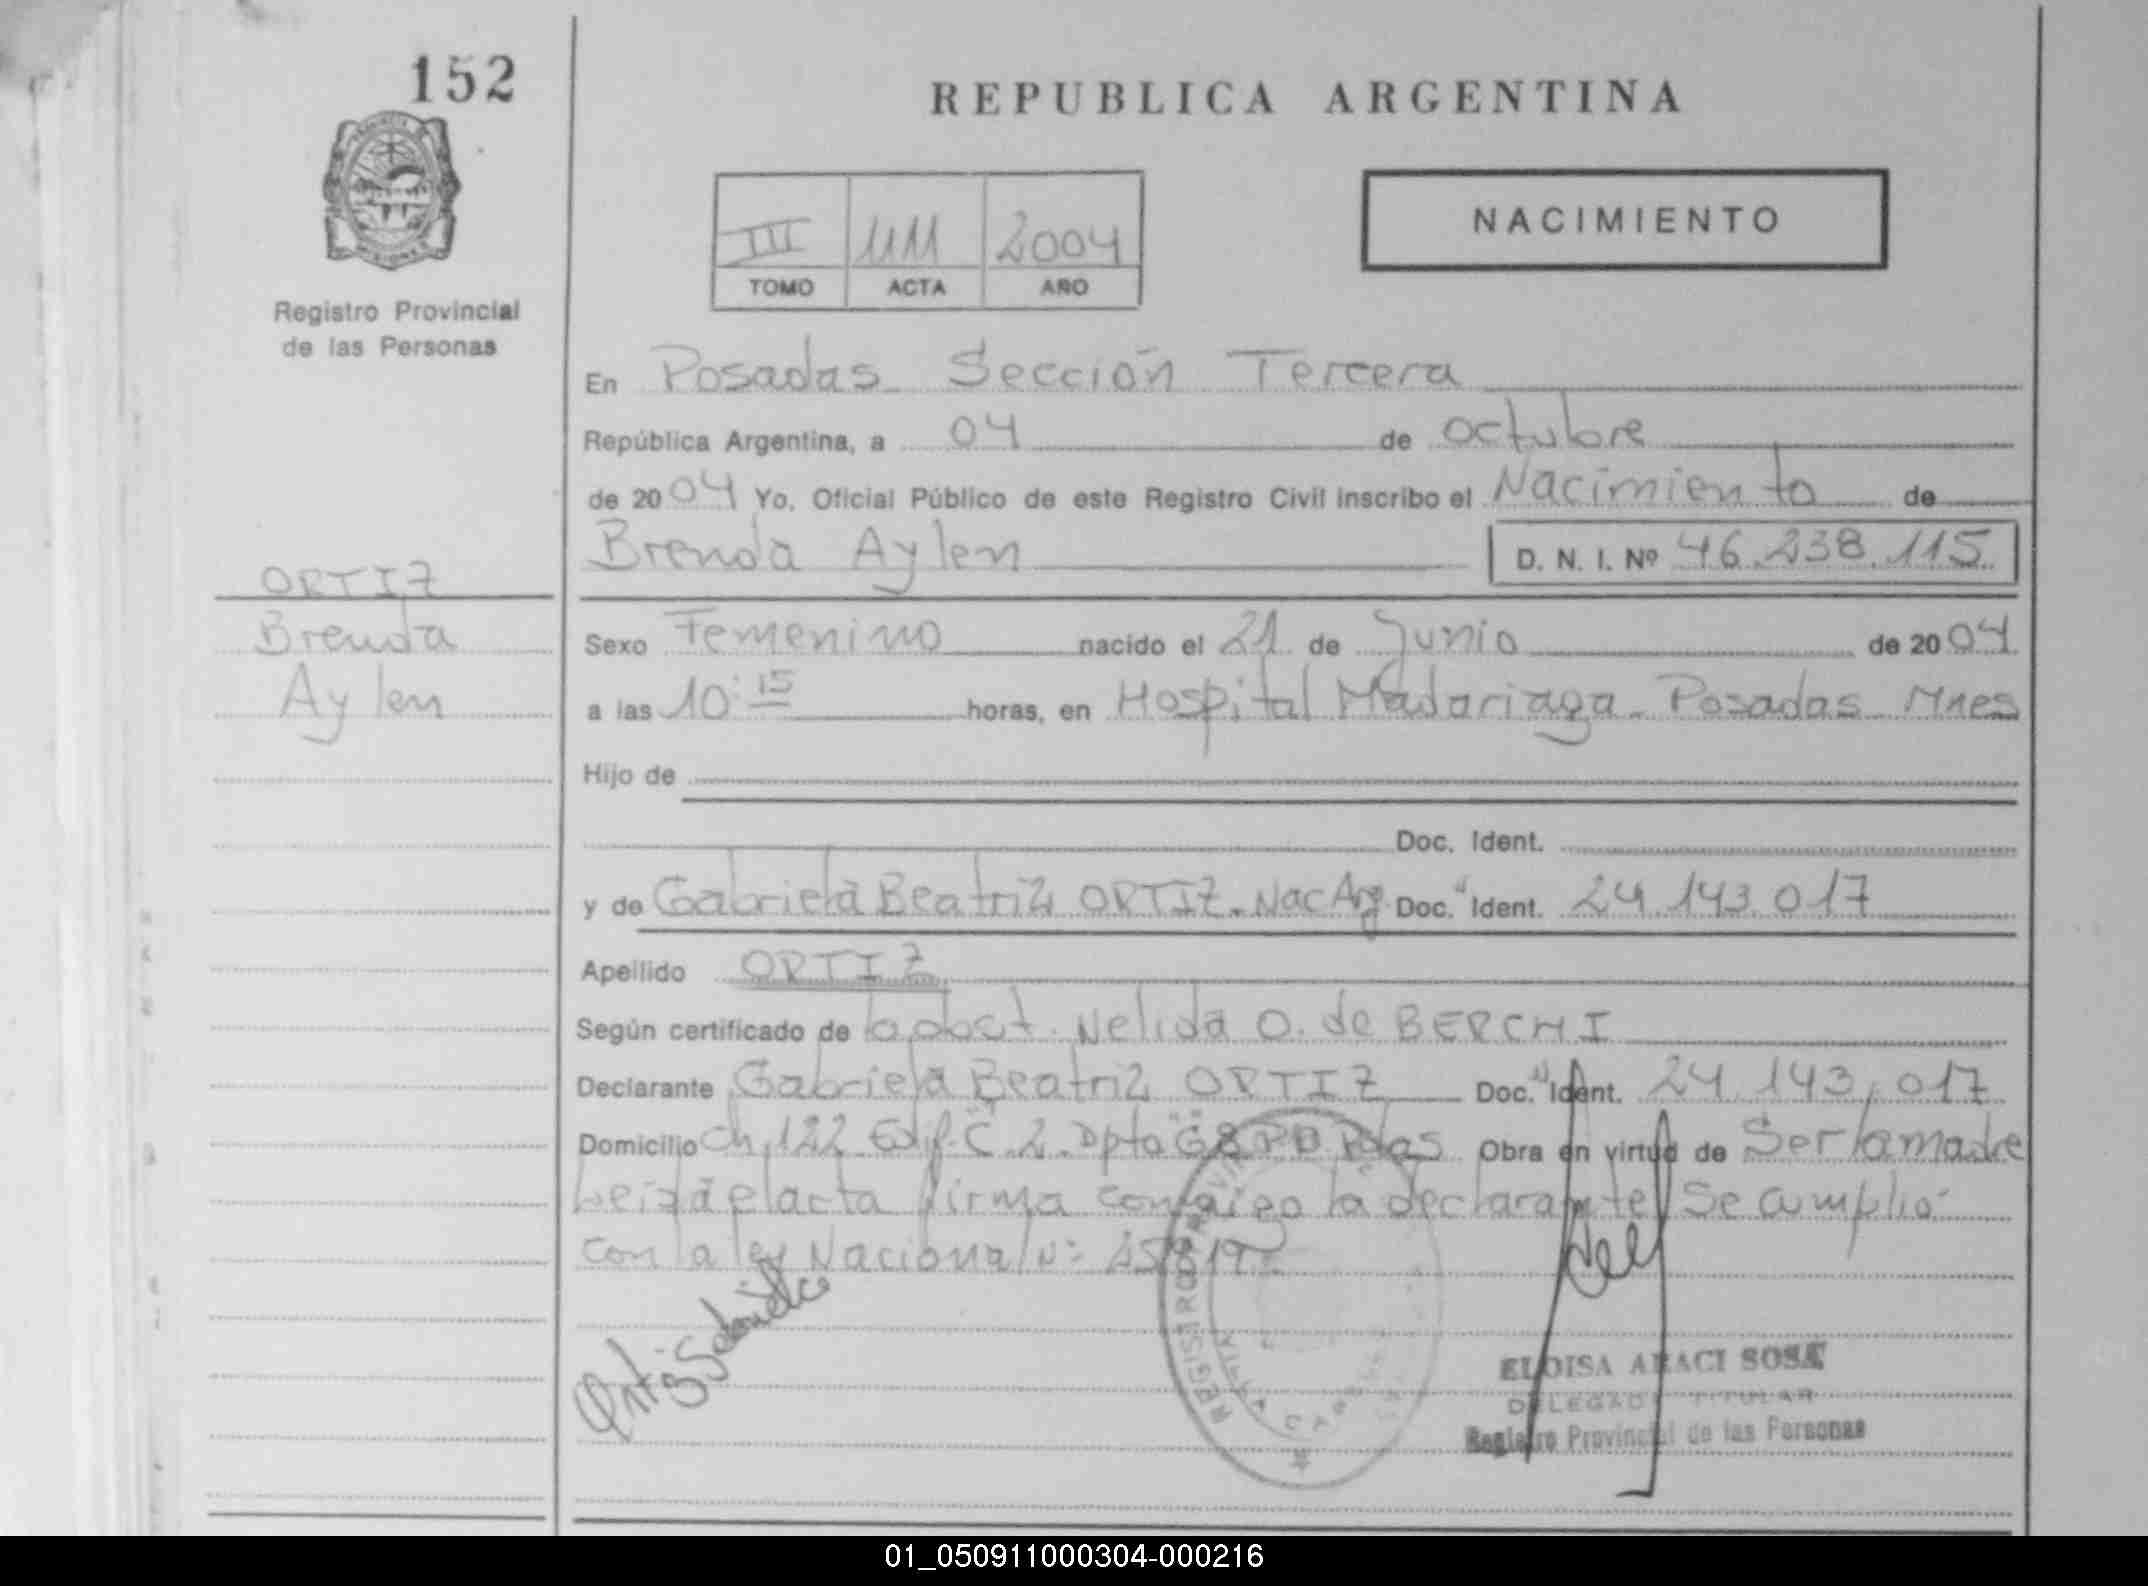 152
REPUBLICA ARGENTINA
NACIMIENTO
III 1111 2004
TOMO ACTA AÑO
Registro Provincial
de las Personas
En Posadas Sección Tercera
República Argentina, a 04 de octubre
de 2004 Yo, Oficial Público de este Registro Civil inscribo el Nacimiento de
Brenda Aylen D. N. I. Nº 46.238.115
ORTIZ
Brenda
Aylen
Sexo Femenino nacido el 21 de Junio de 2004
a las 10:15 horas, en Hospital Madariaga. Posadas Mnes
Hijo de
Doc. Ident.
y de Gabriela Beatriz ORTIZ. Nac Arg. Doc. Ident. 24.143.017
Apellido ORTIZ
Según certificado de la obst. Nelida O. de BERCHI
Declarante Gabriela Beatriz ORTIZ Doc. Ident. 24.143.017
Domicilio Ch. 122 Edif. C. 2. Dpto Pdas Obra en virtud de Ser la madre
leida el acta firma conmigo la declarante Se cumplió
con la ley Nacional Nº
Ortiz Gabriela
REGISTRO PROVINCIAL
ELOISA ARACI SOSA
DELEGADO TITULAR
Registro Provincial de las Personas
01_050911000304-000216